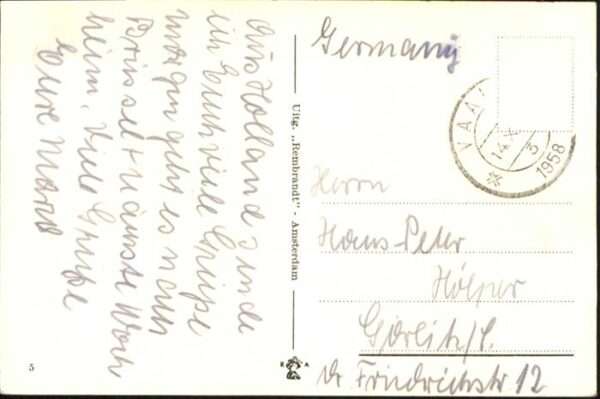 Aus Holland sende
ich Euch viele Grüße
morgen geht es nach
Brüssel + nächste Woche
heim. Viele Grüße
Eure
Uitg. „Rembrandt" - Amsterdam
Germany
VAA
14.X
3
1958
Herrn
Hans-Peter
Hölper
Görlitz/
Friedrichstr 12
5
R A